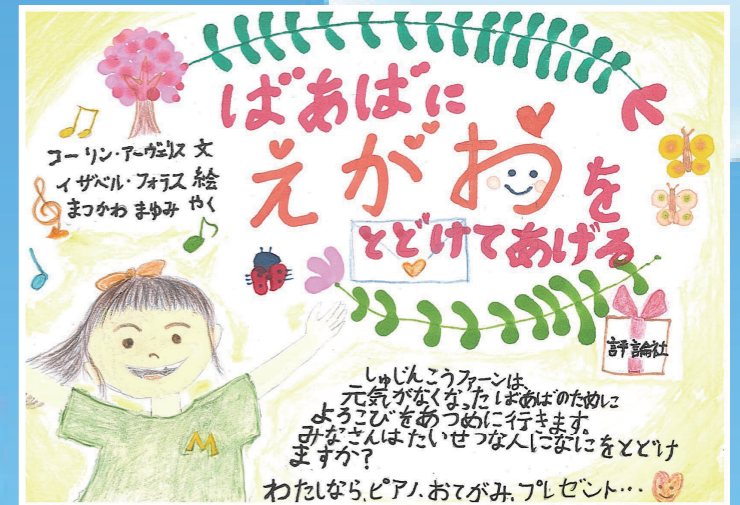 ばあばに
えがおを
とどけてあげる
コーリン・アーヴェリス 文
イザベル・フォラス 絵
まつかわ まゆみ やく
評論社
M
しゅじんこうファーンは、
元気がなくなったばあばのために
よろこびをあつめに行きます。
みなさんはたいせつな人になにをとどけ
ますか?
わたしなら、ピアノ、おてがみ、プレゼント…